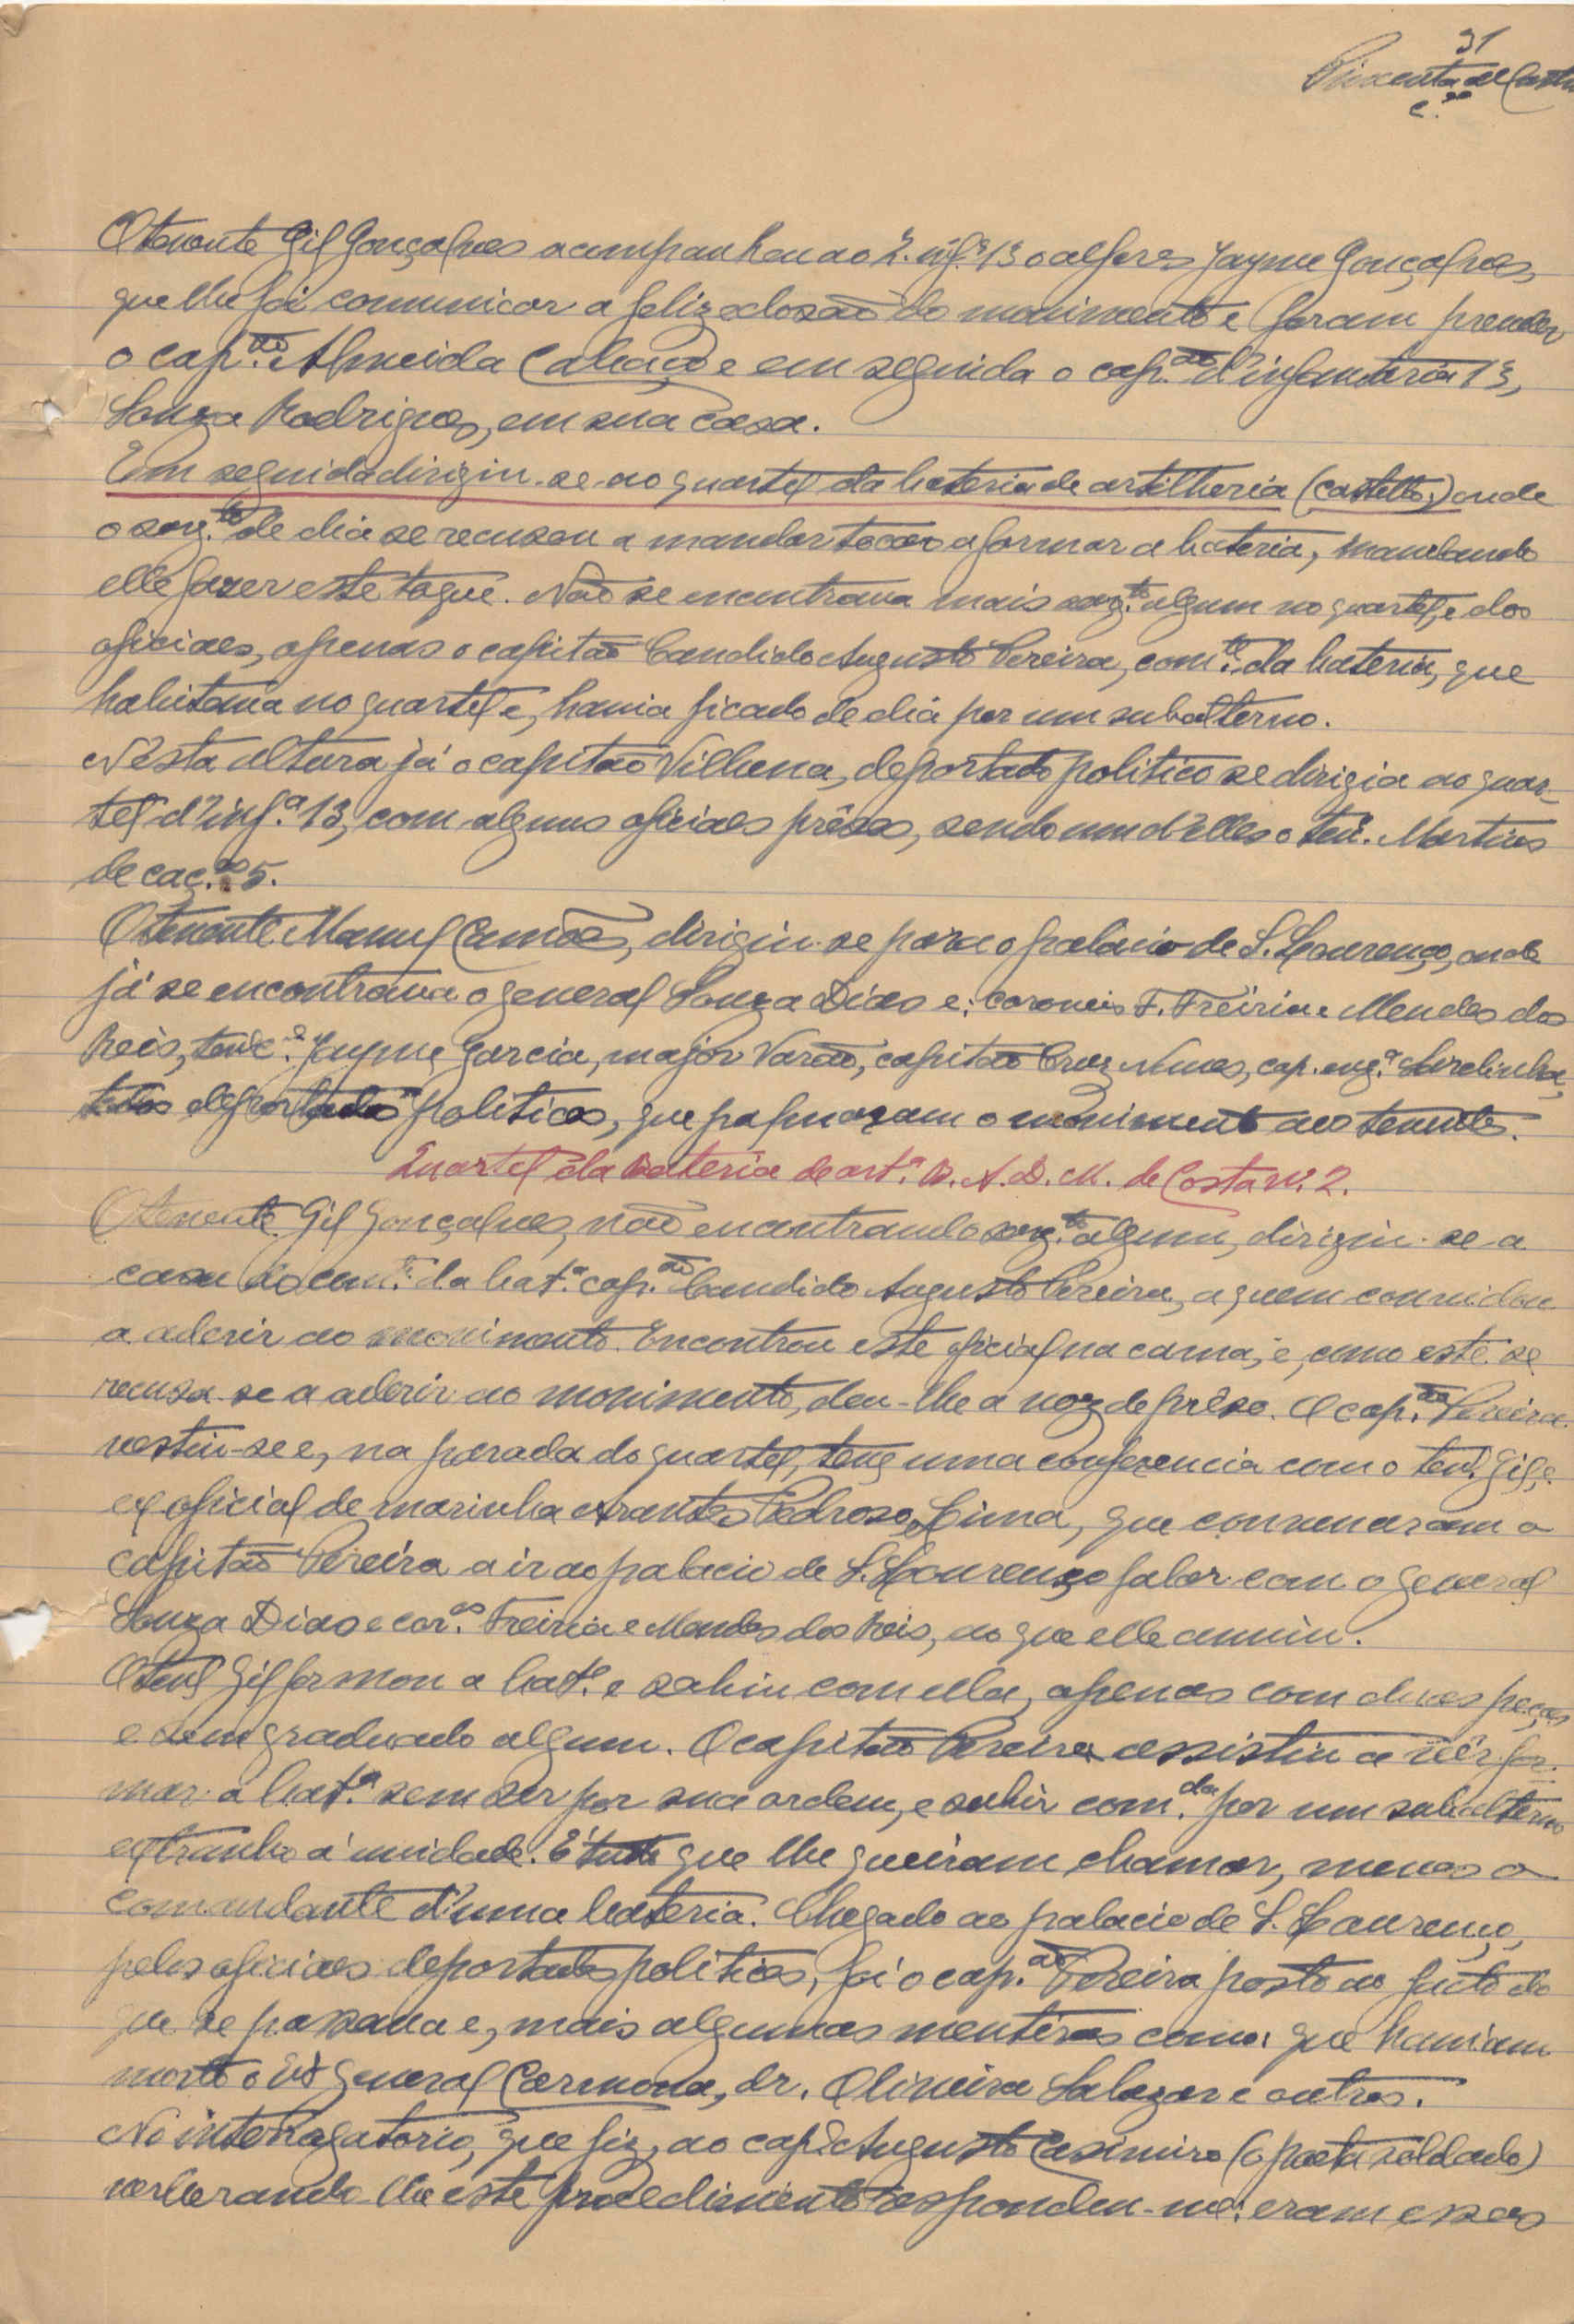 31
Pimenta de Castro
c.ᵉˡ
O tenente Gil Gonçalves acompanhou ao Q. inf.ª 13 o alferes Jayme Gonçalves,
que lhe foi comunicar a feliz eclosão do movimento e foram prender
o cap.ᵃᵒ Almeida Cabaço e em seguida o cap.ᵃᵒ d'infantaria 13,
Souza Rodrigues, em sua casa.
Em seguida dirigiu-se ao quartel da bateria de artilheria (castello;) onde
o sarg.ᵗᵒ de dia se recusou a mandar tocar a formar a bateria, mandando
elle fazer este toque. Não se encontrava mais sarg.ᵗᵒ algum no quartel, e dos
oficiaes, apenas o capitão Candido Augusto Pereira, com.ᵗᵉ da bateria, que
habitava no quartel e, havia ficado de dia por um subalterno.
N'esta altura já o capitão Vilhena, deportado politico se dirigia ao quar-
tel d'inf.ª 13, com alguns oficiaes prêsos, sendo um d'elles o ten. Martins
de caç.ᵉˢ 5.
O tenente Manuel Camões, dirigiu-se para o palacio de S. Lourenço, onde
já se encontrava o general Souza Dias e; coroneis F. Freiria e Mendes dos
Reis, Jayme Garcia, major Varão, capitão Cruz Nunes, cap. eng.ª
deportados politicos, que o movimento aos tenentes.
Quartel da Bateria de art.ª B. A. D. M. de Costa nº. 2.
O tenente Gil Gonçalves, não encontrando sarg.ᵗᵒ algum, dirigiu-se a
casa do com.ᵗᵉ da bat.ª cap.ᵃᵒ Candido Augusto Pereira, a quem convidou
a aderir ao movimento. Encontrou este oficial na cama, e, como este se
recusa-se a aderir ao movimento, deu-lhe a voz de prêso. O cap.ᵃᵒ Pereira
vestiu-se e, na parada do quartel, teve uma conferencia com o tent. Gil, e
ex oficial de marinha Arantes Pedroso, Lima, que convenceram o
capitão Pereira a ir ao palacio de S. Lourenço falar com o general
Souza Dias e cor.ᵉˢ Freiria e Mendes dos Reis, ao que elle anuiu.
O tent. Gil formou a bat.ª e sahiu com ella, apenas com duas peças
e sem graduado algum. O capitão Pereira assistiu a vêr for-
mar a bat.ª sem ser por sua ordem, e sahir com.ᵈᵃ por um subalterno
extranho á unidade. É tudo que lhe queiram chamar, menos o
comandante d'uma bateria. Chegado ao palacio de S. Lourenço,
pelos oficiaes deportados politicos, foi o cap.ᵃᵒ Pereira posto ao facto do
que se passava e, mais algumas mentiras como: que haviam
morto o Exº General Carmona, dr. Oliveira Salazar e outros.
No interrogatorio, que fiz, ao cap. Augusto Casimiro (o poeta soldado)
verberando lhe este procedimento respondeu-me: eram essas